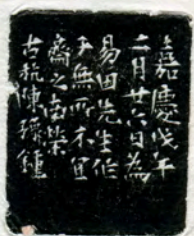 嘉慶戊午
二月廿六日為
易田先生作
于無所不宜
齋之南榮
古杭陳豫鍾